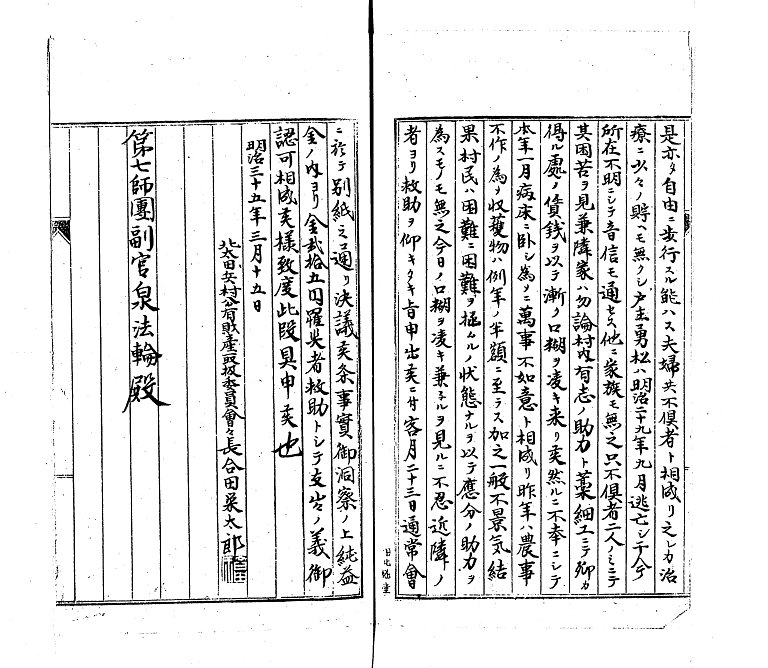 是亦タ自由ニ歩行スル能ハス夫婦共不倶者ト相成リ之レカ治
療ニ少々ノ貯ヘモ無クシ戸主勇松ハ明治二十九年九月逃亡シテ今
所在不明ニシテ音信モ通セス他ニ家族モ無之只不倶者二人ノミニテ
其困苦ヲ見兼隣家ハ勿論村内有志ノ助力ト藁細工ニテ御カ
得ル処ノ賃銭ヲ以テ漸ク口糊ヲ凌キ来リ候然ルニ不幸ニシテ
本年一月病床ニ臥シ為メニ萬事不如意ト相成リ昨年ハ農事
不作ノ為メ収獲物ハ例年ノ半額ニ至ラス加之一般不景気結
果村民ハ困難ニ困難ヲ極ムルノ状態ナルヲ以テ應分ノ助力ヲ
為スモノモ無之今日ノ口糊ヲ凌キ兼ヌルヲ見ルニ不忍近隣ノ
者ヨリ救助ヲ仰キタキ旨申出候ニ付客月二十三日通常會
ニ於テ別紙之通リ決議候条事實御洞察ノ上純益
金ノ内ヨリ金貳拾五円罹災者救助トシテ支出ノ義御
認可相成候様致度此段具申候也
明治三十五年三月十五日
北太田兵村公有財産取扱委員會々長合田粂太郎
第七師團副官泉法輪殿